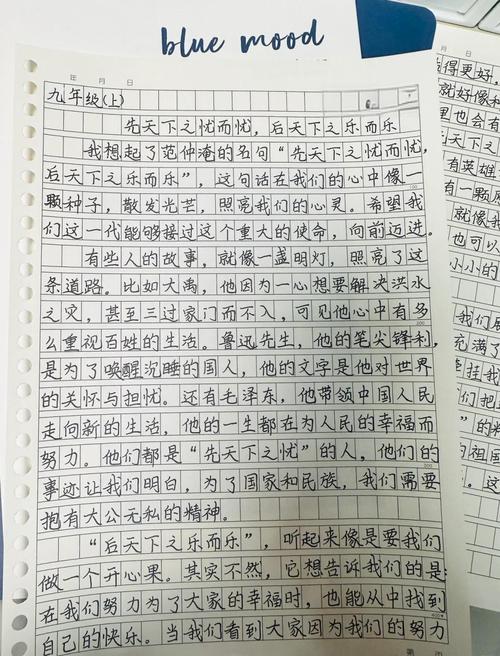 blue mood
年 月 日
九年级(上)
先天下之忧而忧，后天下之乐而乐
我想起了范仲淹的名句“先天下之忧而忧，
后天下之乐而乐”，这句话在我们的心中像一
颗种子，散发光芒，照亮我们的心灵。希望我
们这一代能够接过这个重大的使命，向前迈进。
有些人的故事，就像一盏明灯，照亮了这
条道路。比如大禹，他因为一心想要解决洪水
之灾，甚至三过家门而不入，可见他心中有多
么重视百姓的生活。鲁迅先生，他的笔尖锋利，
是为了唤醒沉睡的国人，他的文字是他对世界
的关怀与担忧。还有毛泽东，他带领中国人民
走向新的生活，他的一生都在为人民的幸福而
努力。他们都是“先天下之忧”的人，他们的
事迹让我们明白，为了国家和民族，我们需要
抱有大公无私的精神。
“后天下之乐而乐”，听起来像是要我们
做一个开心果。其实不然，它想告诉我们的是：
在我们努力为了大家的幸福时，也能从中找到
自己的快乐。当我们看到大家因为我们的努力
得更好，
就好像和
里也会有
先天下之
有英雄
有一颗
就像我
也可以
小小的
充满了
牵挂我
们把
的祖国